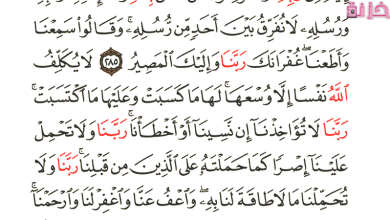 خزنة
وَرُسُلِهِۦ لَا نُفَرِّقُ بَيْنَ أَحَدٍ مِّن رُّسُلِهِۦۚ وَقَالُوا۟ سَمِعْنَا
وَأَطَعْنَاۖ غُفْرَانَكَ رَبَّنَا وَإِلَيْكَ الْمَصِيرُ ٢٨٥ لَا يُكَلِّفُ
اللَّهُ نَفْسًا إِلَّا وُسْعَهَاۚ لَهَا مَا كَسَبَتْ وَعَلَيْهَا مَا اكْتَسَبَتْۗ
رَبَّنَا لَا تُؤَاخِذْنَآ إِن نَّسِينَآ أَوْ أَخْطَأْنَاۚ رَبَّنَا وَلَا تَحْمِلْ
عَلَيْنَآ إِصْرًا كَمَا حَمَلْتَهُۥ عَلَى الَّذِينَ مِن قَبْلِنَاۚ رَبَّنَا وَلَا
تُحَمِّلْنَا مَا لَا طَاقَةَ لَنَا بِهِۦۖ وَاعْفُ عَنَّا وَاغْفِرْ لَنَا وَارْحَمْنَآۚ